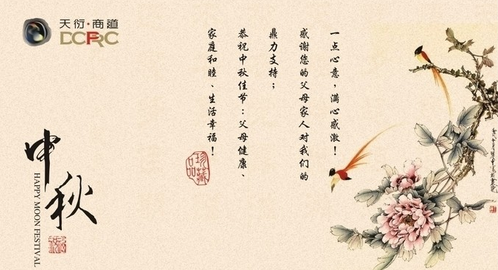 天衍·商道
DCPRC
一点心意，满心感激！
感谢您的父母家人对我们的
鼎力支持；
恭祝中秋佳节：父母健康、
家庭和睦、生活幸福！
珍藏品
中秋
HAPPY MOON FESTIVAL